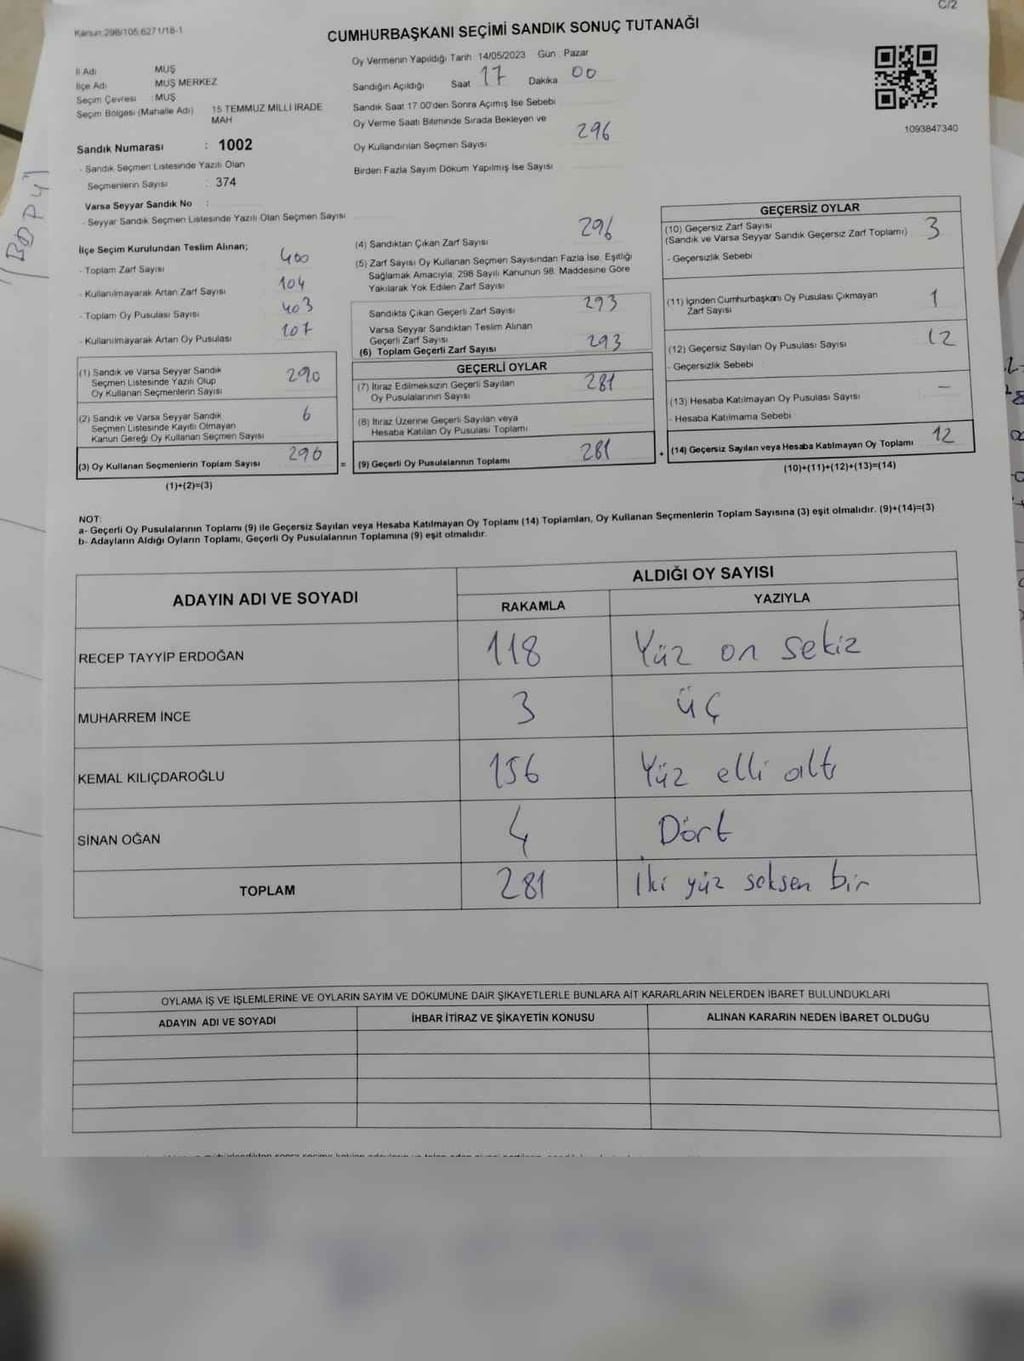 Kanun:298/105.6271/18-1
C/2
CUMHURBAŞKANI SEÇİMİ SANDIK SONUÇ TUTANAĞI
İl Adı : MUŞ
İlçe Adı : MUŞ MERKEZ
Seçim Çevresi : MUŞ
Seçim Bölgesi (Mahalle Adı) : 15 TEMMUZ MİLLİ İRADE
MAH
Sandık Numarası : 1002
- Sandık Seçmen Listesinde Yazılı Olan
Seçmenlerin Sayısı : 374
Varsa Seyyar Sandık No :
- Seyyar Sandık Seçmen Listesinde Yazılı Olan Seçmen Sayısı
Oy Vermenin Yapıldığı Tarih : 14/05/2023 Gün : Pazar
Sandığın Açıldığı Saat 17 Dakika 00
Sandık Saat 17.00'den Sonra Açılmış İse Sebebi
Oy Verme Saati Bitiminde Sırada Bekleyen ve
Oy Kullandırılan Seçmen Sayısı 296
Birden Fazla Sayım Döküm Yapılmış İse Sayısı
1093847340
İlçe Seçim Kurulundan Teslim Alınan;
- Toplam Zarf Sayısı 400
- Kullanılmayarak Artan Zarf Sayısı 104
- Toplam Oy Pusulası Sayısı 403
- Kullanılmayarak Artan Oy Pusulası 107
(1) Sandık ve Varsa Seyyar Sandık
Seçmen Listesinde Yazılı Olup
Oy Kullanan Seçmenlerin Sayısı 290
(2) Sandık ve Varsa Seyyar Sandık
Seçmen Listesinde Kayıtlı Olmayan
Kanun Gereği Oy Kullanan Seçmen Sayısı 6
(3) Oy Kullanan Seçmenlerin Toplam Sayısı 296
(1)+(2)=(3)
(4) Sandıktan Çıkan Zarf Sayısı 296
(5) Zarf Sayısı Oy Kullanan Seçmen Sayısından Fazla İse, Eşitliği
Sağlamak Amacıyla, 298 Sayılı Kanunun 98. Maddesine Göre
Yakılarak Yok Edilen Zarf Sayısı
Sandıkta Çıkan Geçerli Zarf Sayısı 293
Varsa Seyyar Sandıktan Teslim Alınan
Geçerli Zarf Sayısı
(6) Toplam Geçerli Zarf Sayısı 293
GEÇERLİ OYLAR
(7) İtiraz Edilmeksizin Geçerli Sayılan
Oy Pusulalarının Sayısı 281
(8) İtiraz Üzerine Geçerli Sayılan veya
Hesaba Katılan Oy Pusulası Toplamı
= (9) Geçerli Oy Pusulalarının Toplamı 281
GEÇERSİZ OYLAR
(10) Geçersiz Zarf Sayısı 3
(Sandık ve Varsa Seyyar Sandık Geçersiz Zarf Toplamı)
- Geçersizlik Sebebi :
(11) İçinden Cumhurbaşkanı Oy Pusulası Çıkmayan
Zarf Sayısı 1
(12) Geçersiz Sayılan Oy Pusulası Sayısı 12
- Geçersizlik Sebebi :
(13) Hesaba Katılmayan Oy Pusulası Sayısı —
- Hesaba Katılmama Sebebi :
+ (14) Geçersiz Sayılan veya Hesaba Katılmayan Oy Toplamı 12
(10)+(11)+(12)+(13)=(14)
NOT:
a- Geçerli Oy Pusulalarının Toplamı (9) ile Geçersiz Sayılan veya Hesaba Katılmayan Oy Toplamı (14) Toplamları, Oy Kullanan Seçmenlerin Toplam Sayısına (3) eşit olmalıdır. (9)+(14)=(3)
b- Adayların Aldığı Oyların Toplamı, Geçerli Oy Pusulalarının Toplamına (9) eşit olmalıdır.
ADAYIN ADI VE SOYADI
ALDIĞI OY SAYISI
RAKAMLA YAZIYLA
RECEP TAYYİP ERDOĞAN 118 Yüz on sekiz
MUHARREM İNCE 3 üç
KEMAL KILIÇDAROĞLU 156 Yüz elli altı
SİNAN OĞAN 4 Dört
TOPLAM 281 İki yüz seksen bir
OYLAMA İŞ VE İŞLEMLERİNE VE OYLARIN SAYIM VE DÖKÜMÜNE DAİR ŞİKAYETLERLE BUNLARA AİT KARARLARIN NELERDEN İBARET BULUNDUKLARI
ADAYIN ADI VE SOYADI İHBAR İTİRAZ VE ŞİKAYETİN KONUSU ALINAN KARARIN NEDEN İBARET OLDUĞU